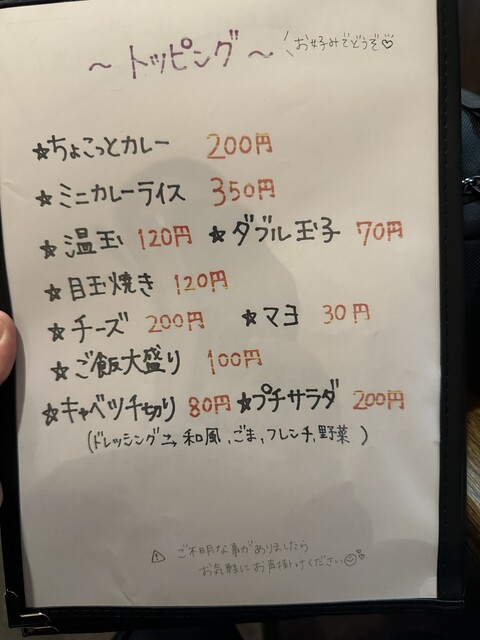 ～ トッピング ～ お好みでどうぞ♡
☆ちょこっとカレー 200円
☆ミニカレーライス 350円
☆温玉 120円 ☆ダブル玉子 70円
☆目玉焼き 120円
☆チーズ 200円 ☆マヨ 30円
☆ご飯大盛り 100円
☆キャベツ千切り 80円 ☆プチサラダ 200円
(ドレッシング→和風、ごま、フレンチ、野菜)
⚠ ご不明な事がありましたら
お気軽にお声掛けください☺